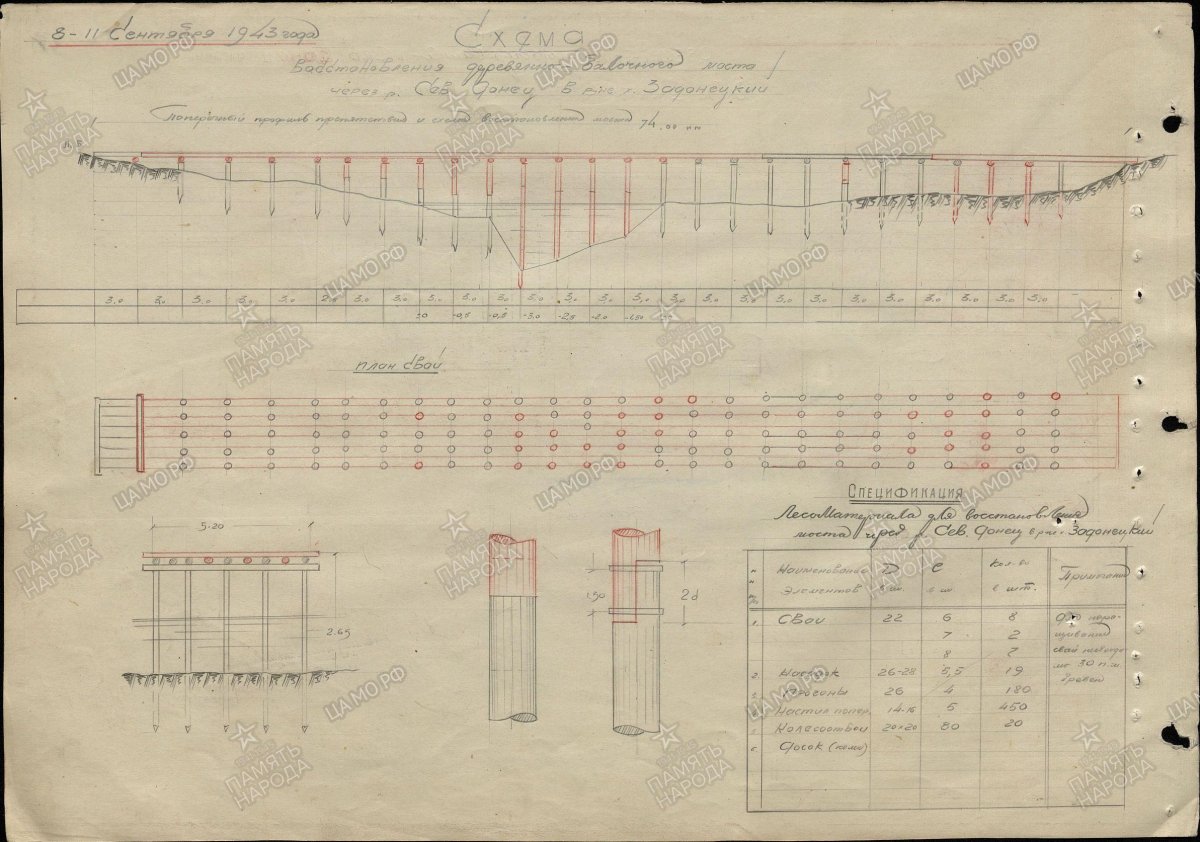 8-11 Сентября 1943 года
Схема
Восстановления деревянного балочного моста
через р. Сев. Донец в р-не г. Задонецкий
Поперечный профиль препятствия и схема восстановления моста 74.00 пм
3.0 3.0 3.0 3.0 3.0 2.0 3.0 3.0 3.0 3.0 3.0 3.0 3.0 3.0 3.0 3.0 3.0 3.0 3.0 3.0 3.0 3.0 3.0 3.0 3.0
-0.5 -0.5 -3.0 -2.5 -2.0 -1.50
план свай
5.20
2.65
1.50
2d
Спецификация
Лесоматериала для восстановления
моста через р. Сев. Донец в р-не г. Задонецкий
Наименование D ℓ Кол-во Примечание
Элементов в см. в м. в шт.
1. Сваи 22 6 8 Для наращивания
7 2
8 7 свай необходимо 30 п.м.
2. Насадок 26-28 5,5 19 бревен
3. Прогоны 26 4 180
4. Настил попер. 14-16 5 450
5. Колесоотбои 20×20 80 20
6. Досок
ЦАМО РФ
ПАМЯТЬ
НАРОДА